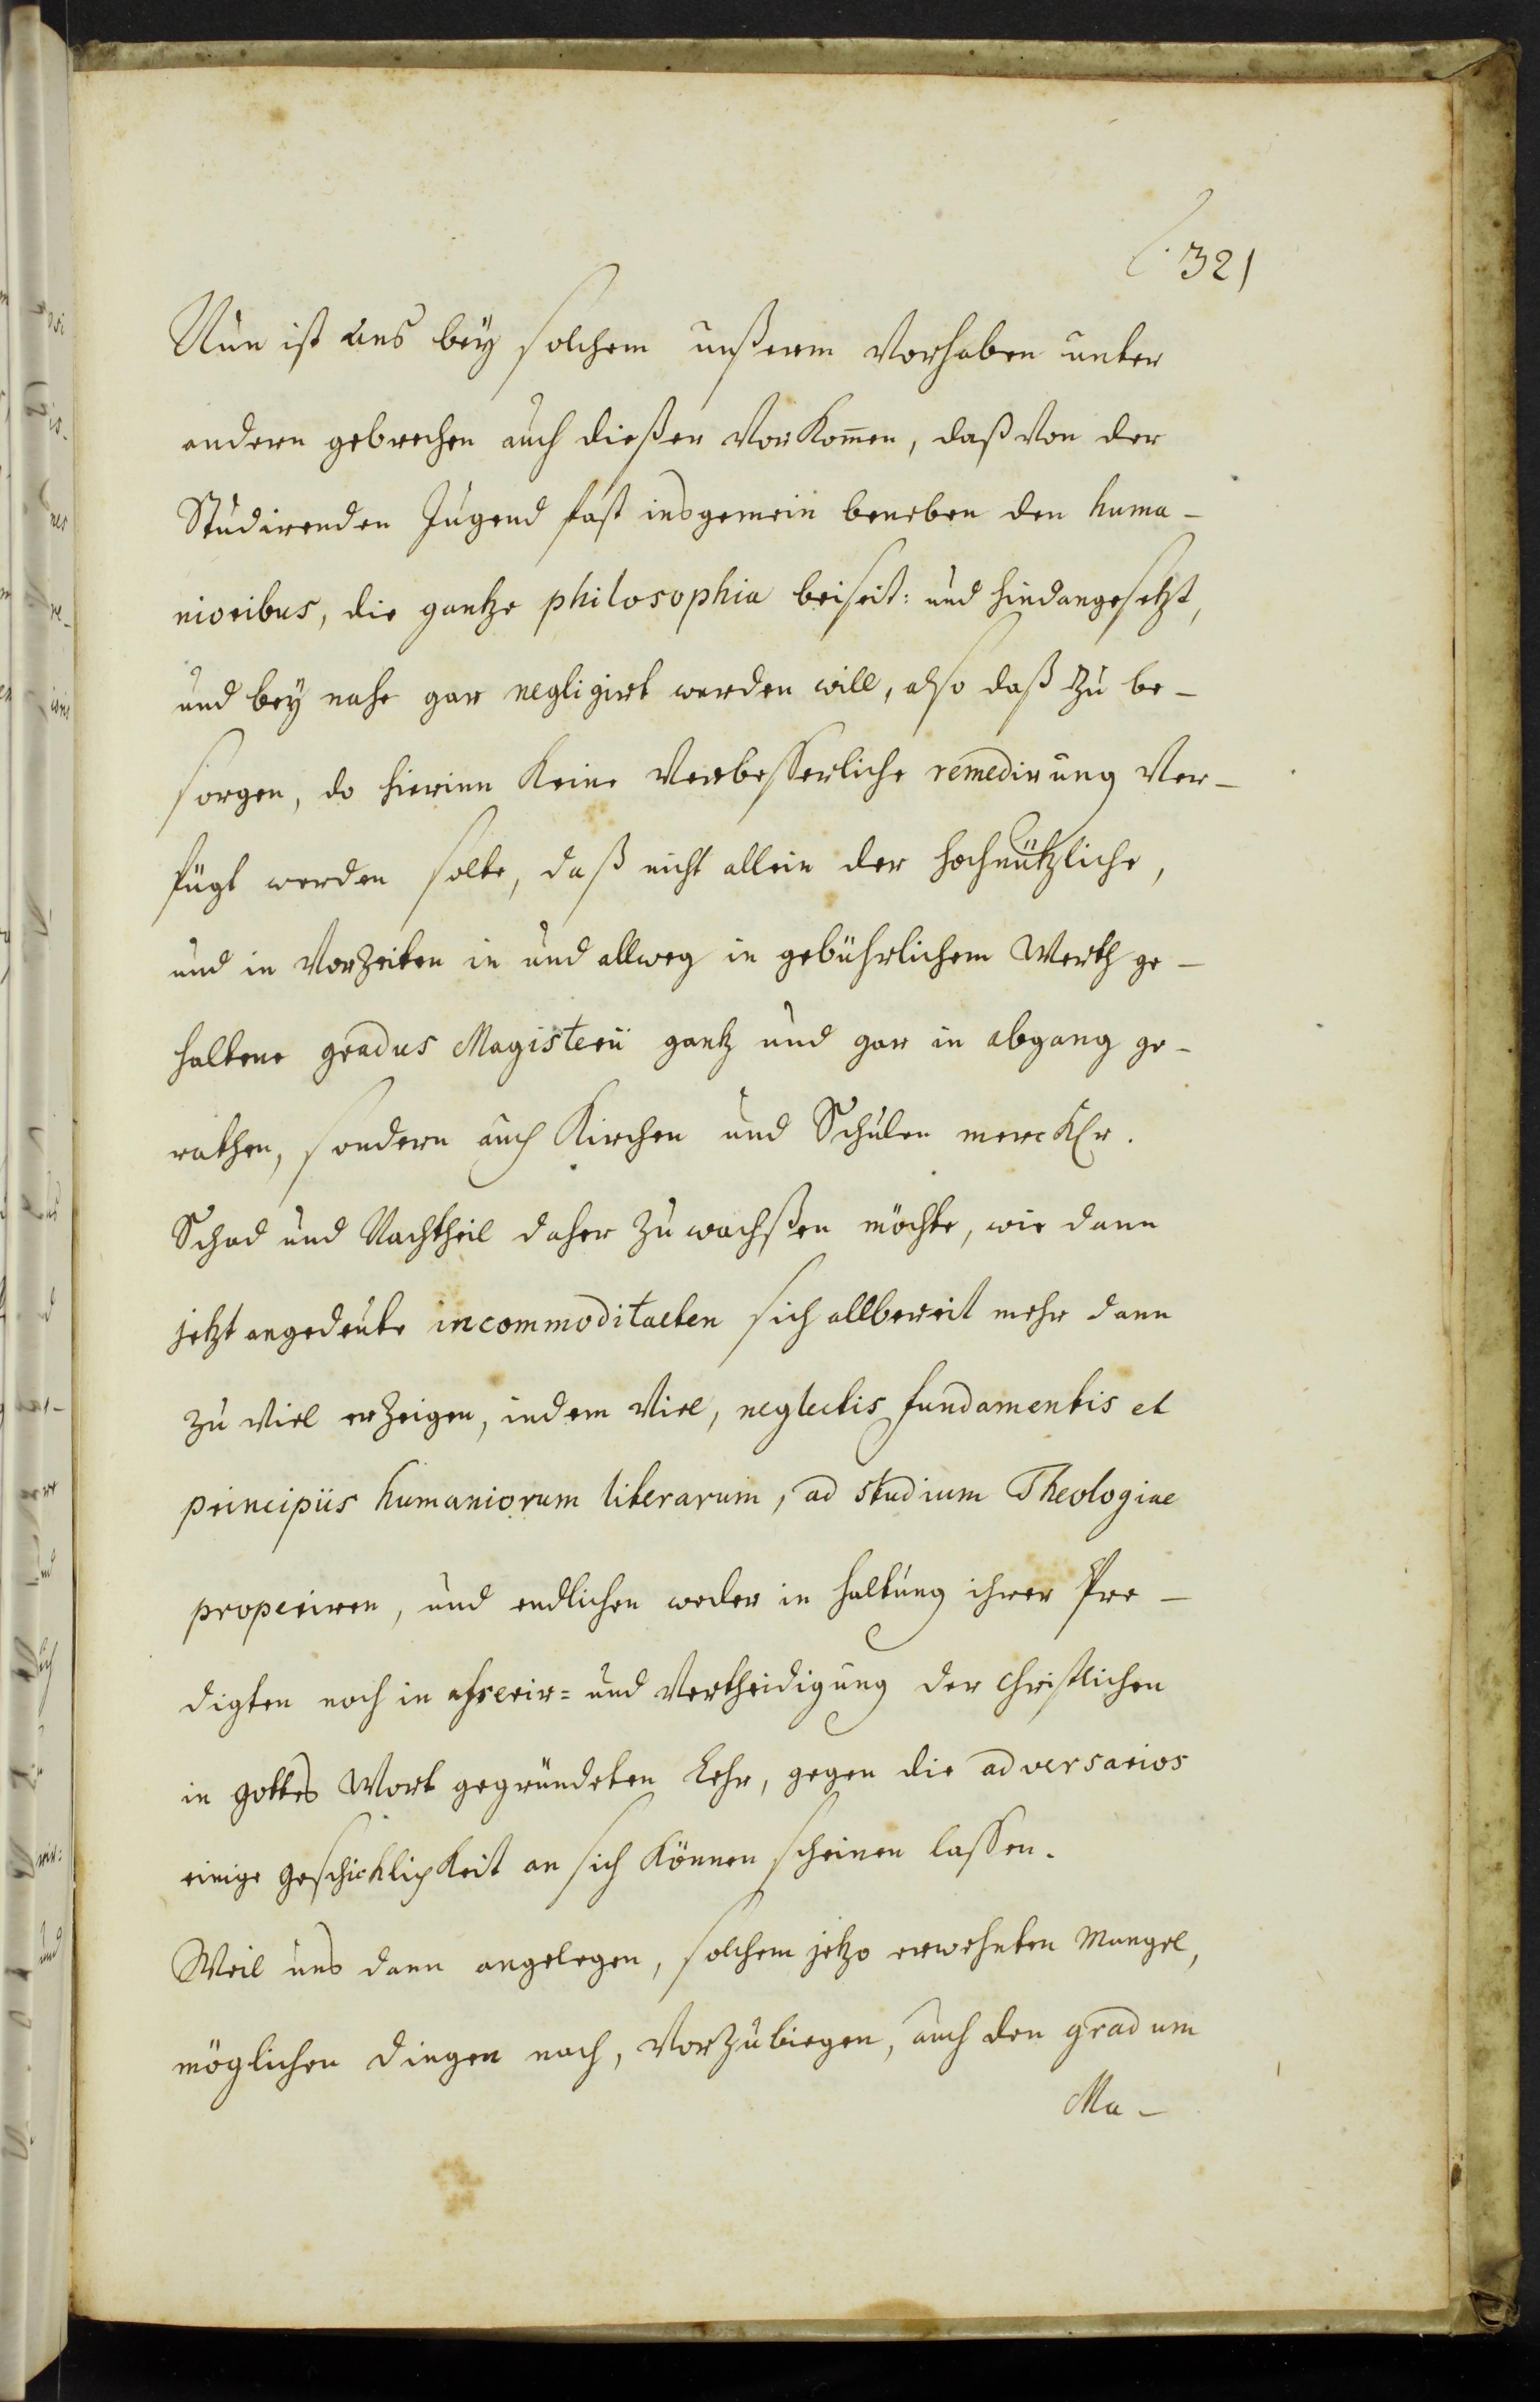 321
Nun ist uns bey solchem unßerm Vorhaben unter
andern gebrechen auch dießer VorKom̄en, daß Von der
Studirenden Jugend fast insgemein beneben den huma-
nioribus, die gantze philosophia beiseit: und hindangesetzt,
und bey nahe gar negligirt werden will, also daß zu be-
sorgen, do hierinn Keine Verbesserliche remedirung Ver-
fügt werden solte, daß nicht allein der hochnützliche,
und in Vorzeiten in und allweg in gebührlichem Werth ge-
haltene gradus Magisterii gantz und gar in abgang ge-
rathen, sondern auch Kirchen und Schulen merckl.
Schad und Nachtheil daher zu wachßen möchte, wie dann
jetzt angedeute incommoditaeten sich allbereit mehr dann
zu Viel erzeigen, indem Viel, neglectis fundamentis et
principiis humaniorum literarum, ad studium Theologiae
properiren, und endlichen weder in haltung ihrer Pre-
digten noch in asserir= und Vertheidigung der Christlichen
in gottes Wort gegründeten Lehr, gegen die adversarios
einige geschicklichKeit an sich Können scheinen lassen.
Weil uns dann angelegen, solchem jetzo erwehnten Mangel,
möglichen dingen nach, Vorzubiegen, auch den gradum
Ma-